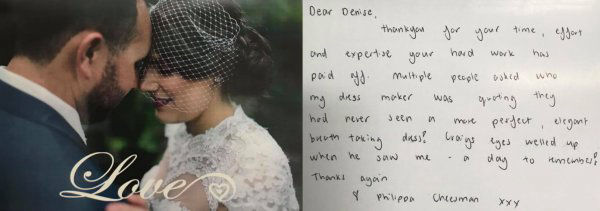 Love
Dear Denise,
thankyou for your time, effort
and expertise your hard work has
paid off. Multiple people asked who
my dress maker was quoting they
had never seen a more perfect, elegant
breath taking dress! Craigs eyes welled up
when he saw me - a day to remember!
Thanks again
Philippa Cheesman xxy